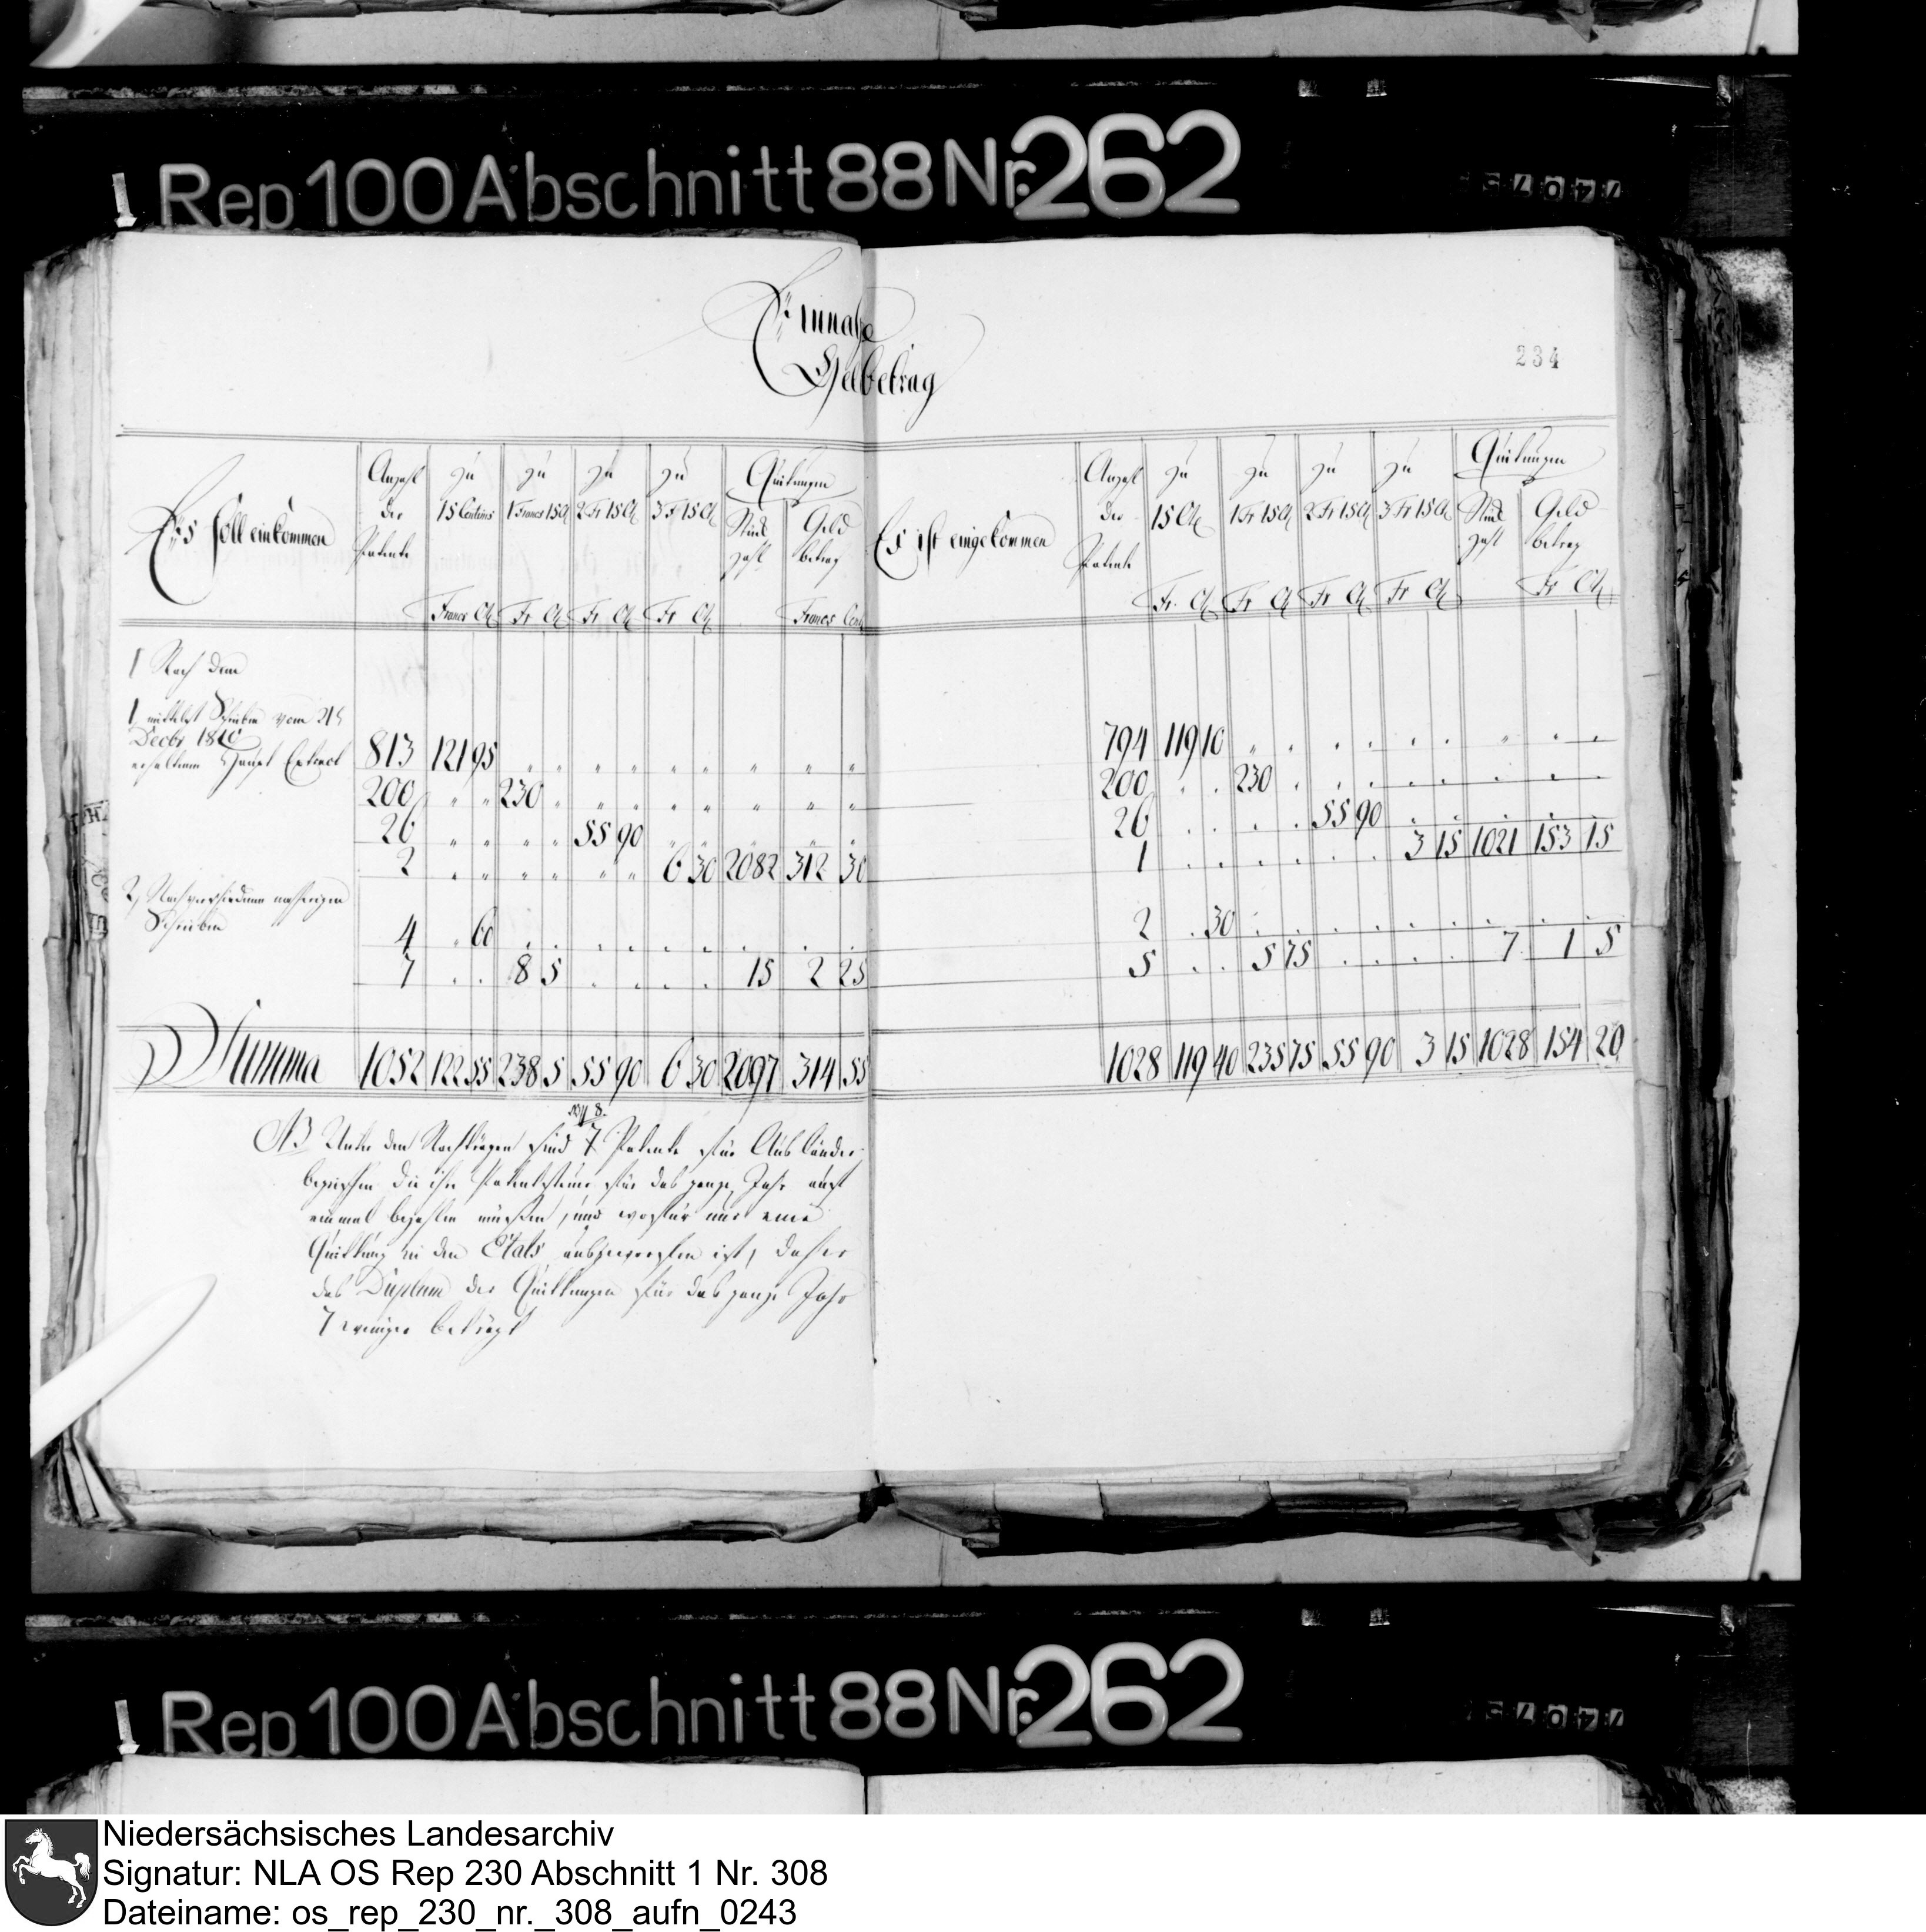 Rep 100 Abschnitt 88 Nr. 262
Einnahe
Gelbetrag
234
Es soll einkommen
Anzahl der Patente
zu 15 Centims
zu 1 Francs 15 Ct
zu 2 Fr 15 Ct
zu 3 Fr 15 Ct
Quitungen
Stück zahl
Geld betrag
Francs Ct Fr Ct Fr Ct Fr Ct Francs Cent
1 Nach dem
mittelst Schreiben vom 21t
Decbr 1810
erhaltenen Haupt Extract 813 121 95
200 230
26 55 90
2 6 30 2082 312 30
2, Nach verschiedenen nachherigen
Schreiben
4 60
7 8 5 15 2 25
Summa 1052 122 55 238 5 55 90 6 30 2097 314 55
NB Unter den Nachträgen sind 7 Patente für Ausländer
begriffen die ihre Patentsteuer für das ganze Jahr auf
einmal bezahlen müßen, und wofür nur eine
Quittung in den Etats ausgeworfen ist, daher
das Duplum der Quittungen für das ganze Jahr
7 weniger beträgt
Es ist eingekommen
Anzahl der Patente
zu 15 Ct
zu 1 Fr 15 Ct
zu 2 Fr 15 Ct
zu 3 Fr 15 Ct
Quitungen
Stück zahl
Geld betrag
Fr. Ct Fr Ct Fr Ct Fr Ct Fr Ct
794 119 10
200 230
26 55 90
1 3 15 1021 153 15
2 30
5 5 75 7 1 5
1028 119 40 235 75 55 90 3 15 1028 154 20
Rep 100 Abschnitt 88 Nr. 262
Niedersächsisches Landesarchiv
Signatur: NLA OS Rep 230 Abschnitt 1 Nr. 308
Dateiname: os_rep_230_nr._308_aufn_0243